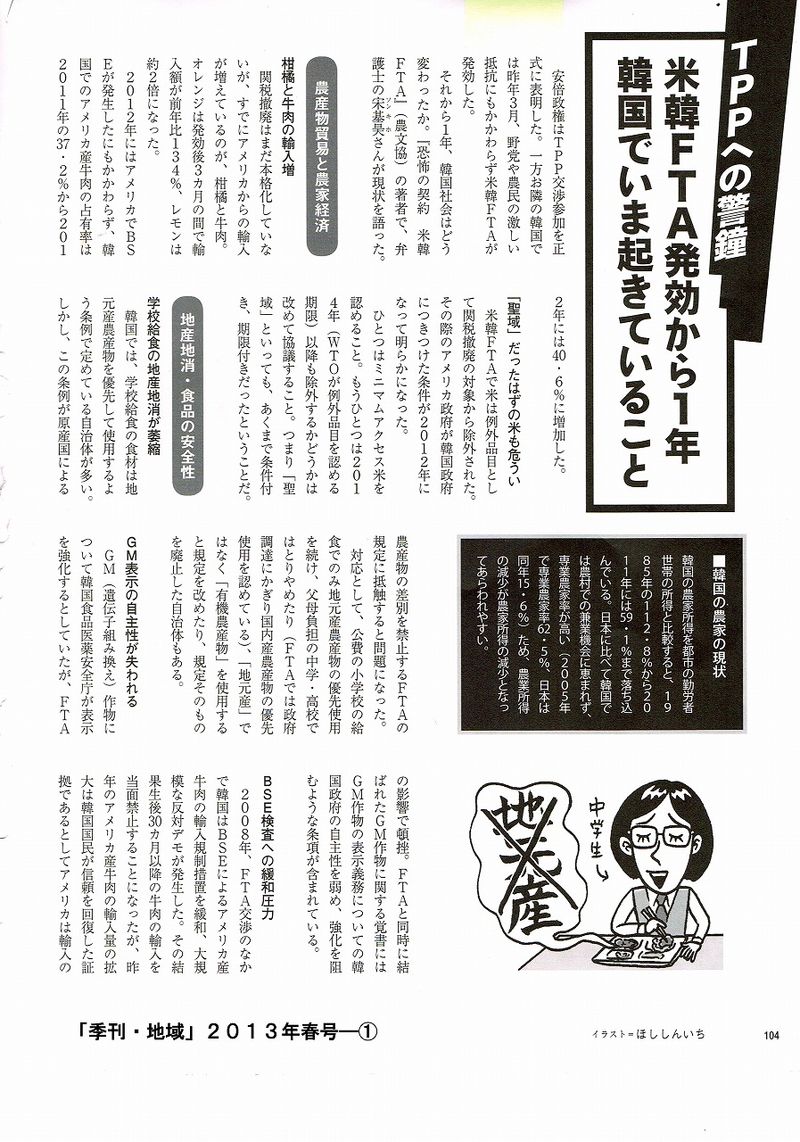 TPPへの警鐘
米韓FTA発効から1年
韓国でいま起きていること
安倍政権はTPP交渉参加を正
式に表明した。一方お隣の韓国で
は昨年3月、野党や農民の激しい
抵抗にもかかわらず米韓FTAが
発効した。
それから1年、韓国社会はどう
変わったか。『恐怖の契約 米韓
FTA』(農文協)の著者で、弁
護士の宋基昊さんが現状を語った。
ソンキホ
農産物貿易と農家経済
柑橘と牛肉の輸入増
関税撤廃はまだ本格化していな
いが、すでにアメリカからの輸入
が増えているのが、柑橘と牛肉。
オレンジは発効後3カ月の間で輸
入額が前年比134%、レモンは
約2倍になった。
2012年にはアメリカでBS
Eが発生したにもかかわらず、韓
国でのアメリカ産牛肉の占有率は
2011年の37・2%から201
2年には40・6%に増加した。
「聖域」だったはずの米も危うい
米韓FTAで米は例外品目とし
て関税撤廃の対象から除外された。
その際のアメリカ政府が韓国政府
につきつけた条件が2012年に
なって明らかになった。
ひとつはミニマムアクセス米を
認めること。もうひとつは201
4年(WTOが例外品目を認める
期限)以降も除外するかどうかは
改めて協議すること。つまり「聖
域」といっても、あくまで条件付
き、期限付きだったということだ。
地産地消・食品の安全性
学校給食の地産地消が萎縮
韓国では、学校給食の食材は地
元産農産物を優先して使用するよ
う条例で定めている自治体が多い。
しかし、この条例が原産国による
農産物の差別を禁止するFTAの
規定に抵触すると問題になった。
対応として、公費の小学校の給
食でのみ地元産農産物の優先使用
を続け、父母負担の中学・高校で
はとりやめたり(FTAでは政府
調達にかぎり国内産農産物の優先
使用を認めている)、「地元産」で
はなく「有機農産物」を使用する
と規定を改めたり、規定そのもの
を廃止した自治体もある。
GM表示の自主性が失われる
GM(遺伝子組み換え)作物に
ついて韓国食品医薬安全庁が表示
を強化するとしていたが、FTA
の影響で頓挫。FTAと同時に結
ばれたGM作物に関する覚書には
GM作物の表示義務についての韓
国政府の自主性を弱め、強化を阻
むような条項が含まれている。
BSE検査への緩和圧力
2008年、FTA交渉のなか
で韓国はBSEによるアメリカ産
牛肉の輸入規制措置を緩和、大規
模な反対デモが発生した。その結
果生後30カ月以降の牛肉の輸入を
当面禁止することになったが、昨
年のアメリカ産牛肉の輸入量の拡
大は韓国国民が信頼を回復した証
拠であるとしてアメリカは輸入の
■韓国の農家の現状
韓国の農家所得を都市の勤労者
世帯の所得と比較すると、19
85年の112・8%から20
11年には59・1%まで落ち込
んでいる。日本に比べて韓国で
は農村での兼業機会に恵まれず、
専業農家率が高い(2005年
で専業農家率62・5%、日本は
同年15・6%)ため、農業所得
の減少が農家所得の減少となっ
てあらわれやすい。
中学生
地元産
イラスト=ほししんいち
104
「季刊・地域」2013年春号―①